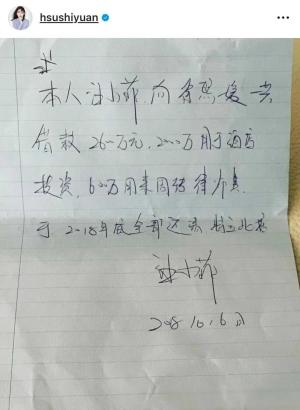 hsushiyuan
本人汪小菲,向徐熙媛共
借款2600万元,2000万用于酒店
投资,600万用来周转律师费.
于2018年底全部还清 特立此据
汪小菲
2018.10.6日